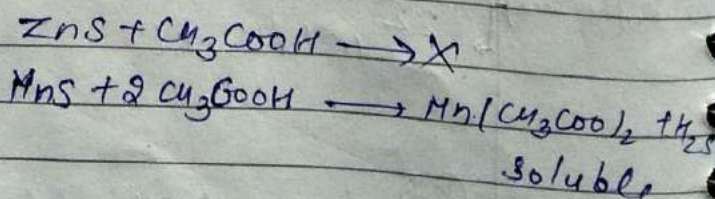 ZnS + CH₃COOH ⟶ X
MnS + 2 CH₃COOH ⟶ Mn(CH₃COO)₂ + H₂S
soluble